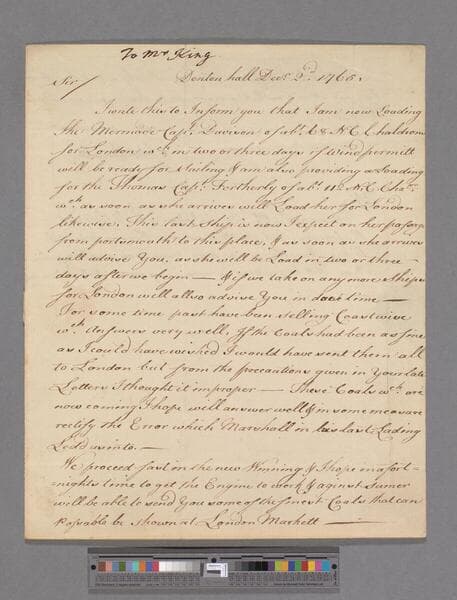 To Mr King
Sir/ Denton hall Decr 2d 1766.
I write this to Inform you that I am now Loading
the Mermaid Capt. Davison of abt. & N C Chaldrons
for London wch in two or three days if Wind permitt
will be ready for Sailing & I am also providing a Loading
for the Thomas Capt. Fortherly of abt. 11 N C Char.
wch as soon as she arrives will Load her for London
likewise. This last Ship is now I expect on her pasage
from portsmouth to this place, & as soon as she arrives
will advise You, as she will be Load in two or three
days after we begin — & if we take on any more Ships
for London will allso advise You in doue time —
For some time past have been Selling Coastwise
wch Answers very well. If the Coals had been as fine
as I could have wished I would have sent them all
to London but from the precautions given in Your late
Letters I thought it improper — These Coals wch are
now coming I hope will answer well & in some measure
rectify the Error which Marshall in his last Lading
Ledd us into. —
We proceed fast in the new Winning & I hope in a fort-
-nights time to get the Engine to work & aginst Sumer
will be able to send You some of the finest Coals that can
Possable be shown at London Markett —